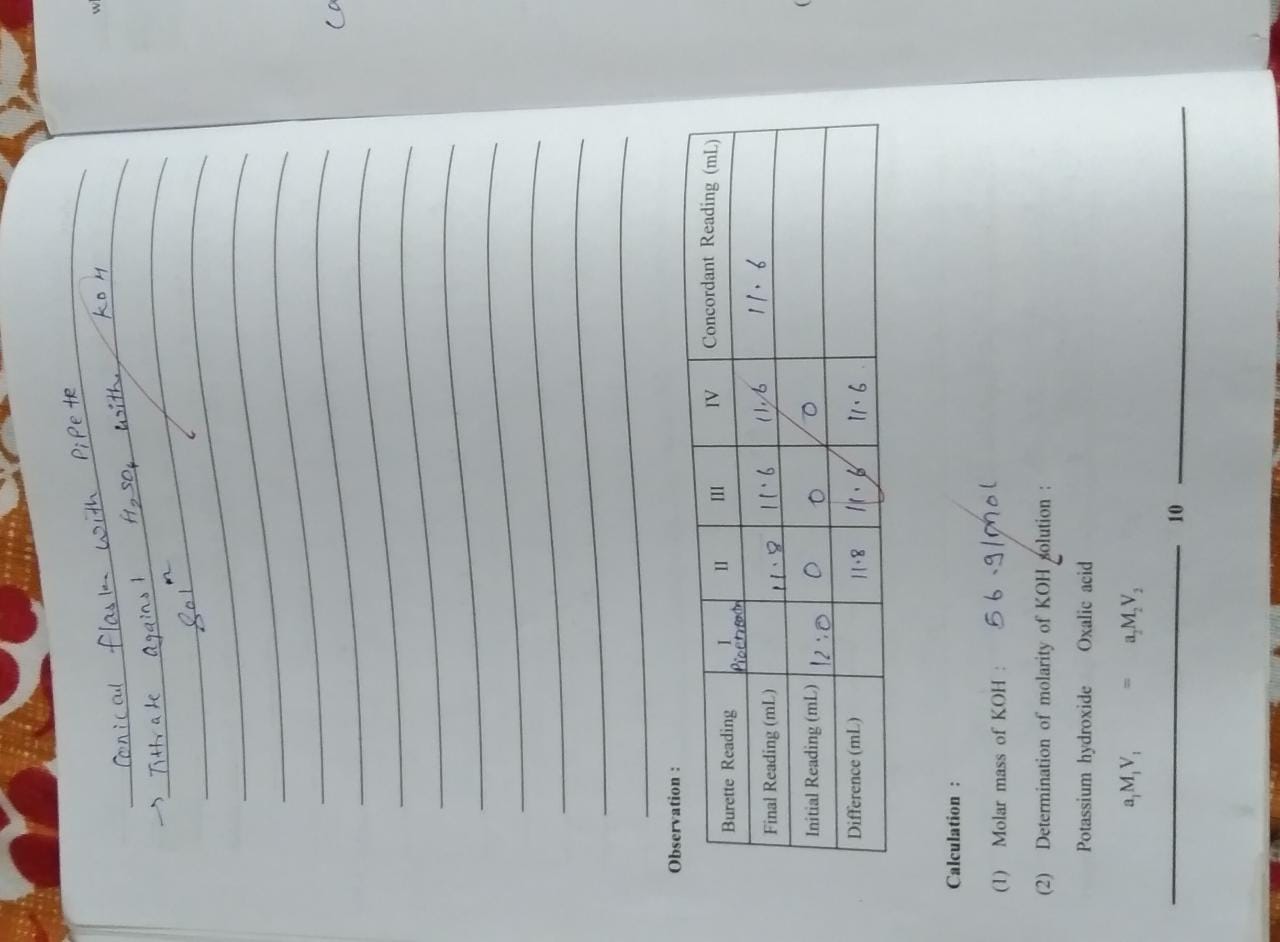 Conical flask with Pipete
→ Tithrate against H₂SO₄ with KOH
Soln
Observation :
Burette Reading I II III IV Concordant Reading (mL)
Final Reading (mL) 11.8 11.6 11.6 11.6
Initial Reading (mL) 12:0 0 0 0
Difference (mL) 11.8 11.6 11.6
Calculation :
(1) Molar mass of KOH : 56 .g/mol
(2) Determination of molarity of KOH solution :
Potassium hydroxide Oxalic acid
a₁M₁V₁ = a₂M₂V₂
10